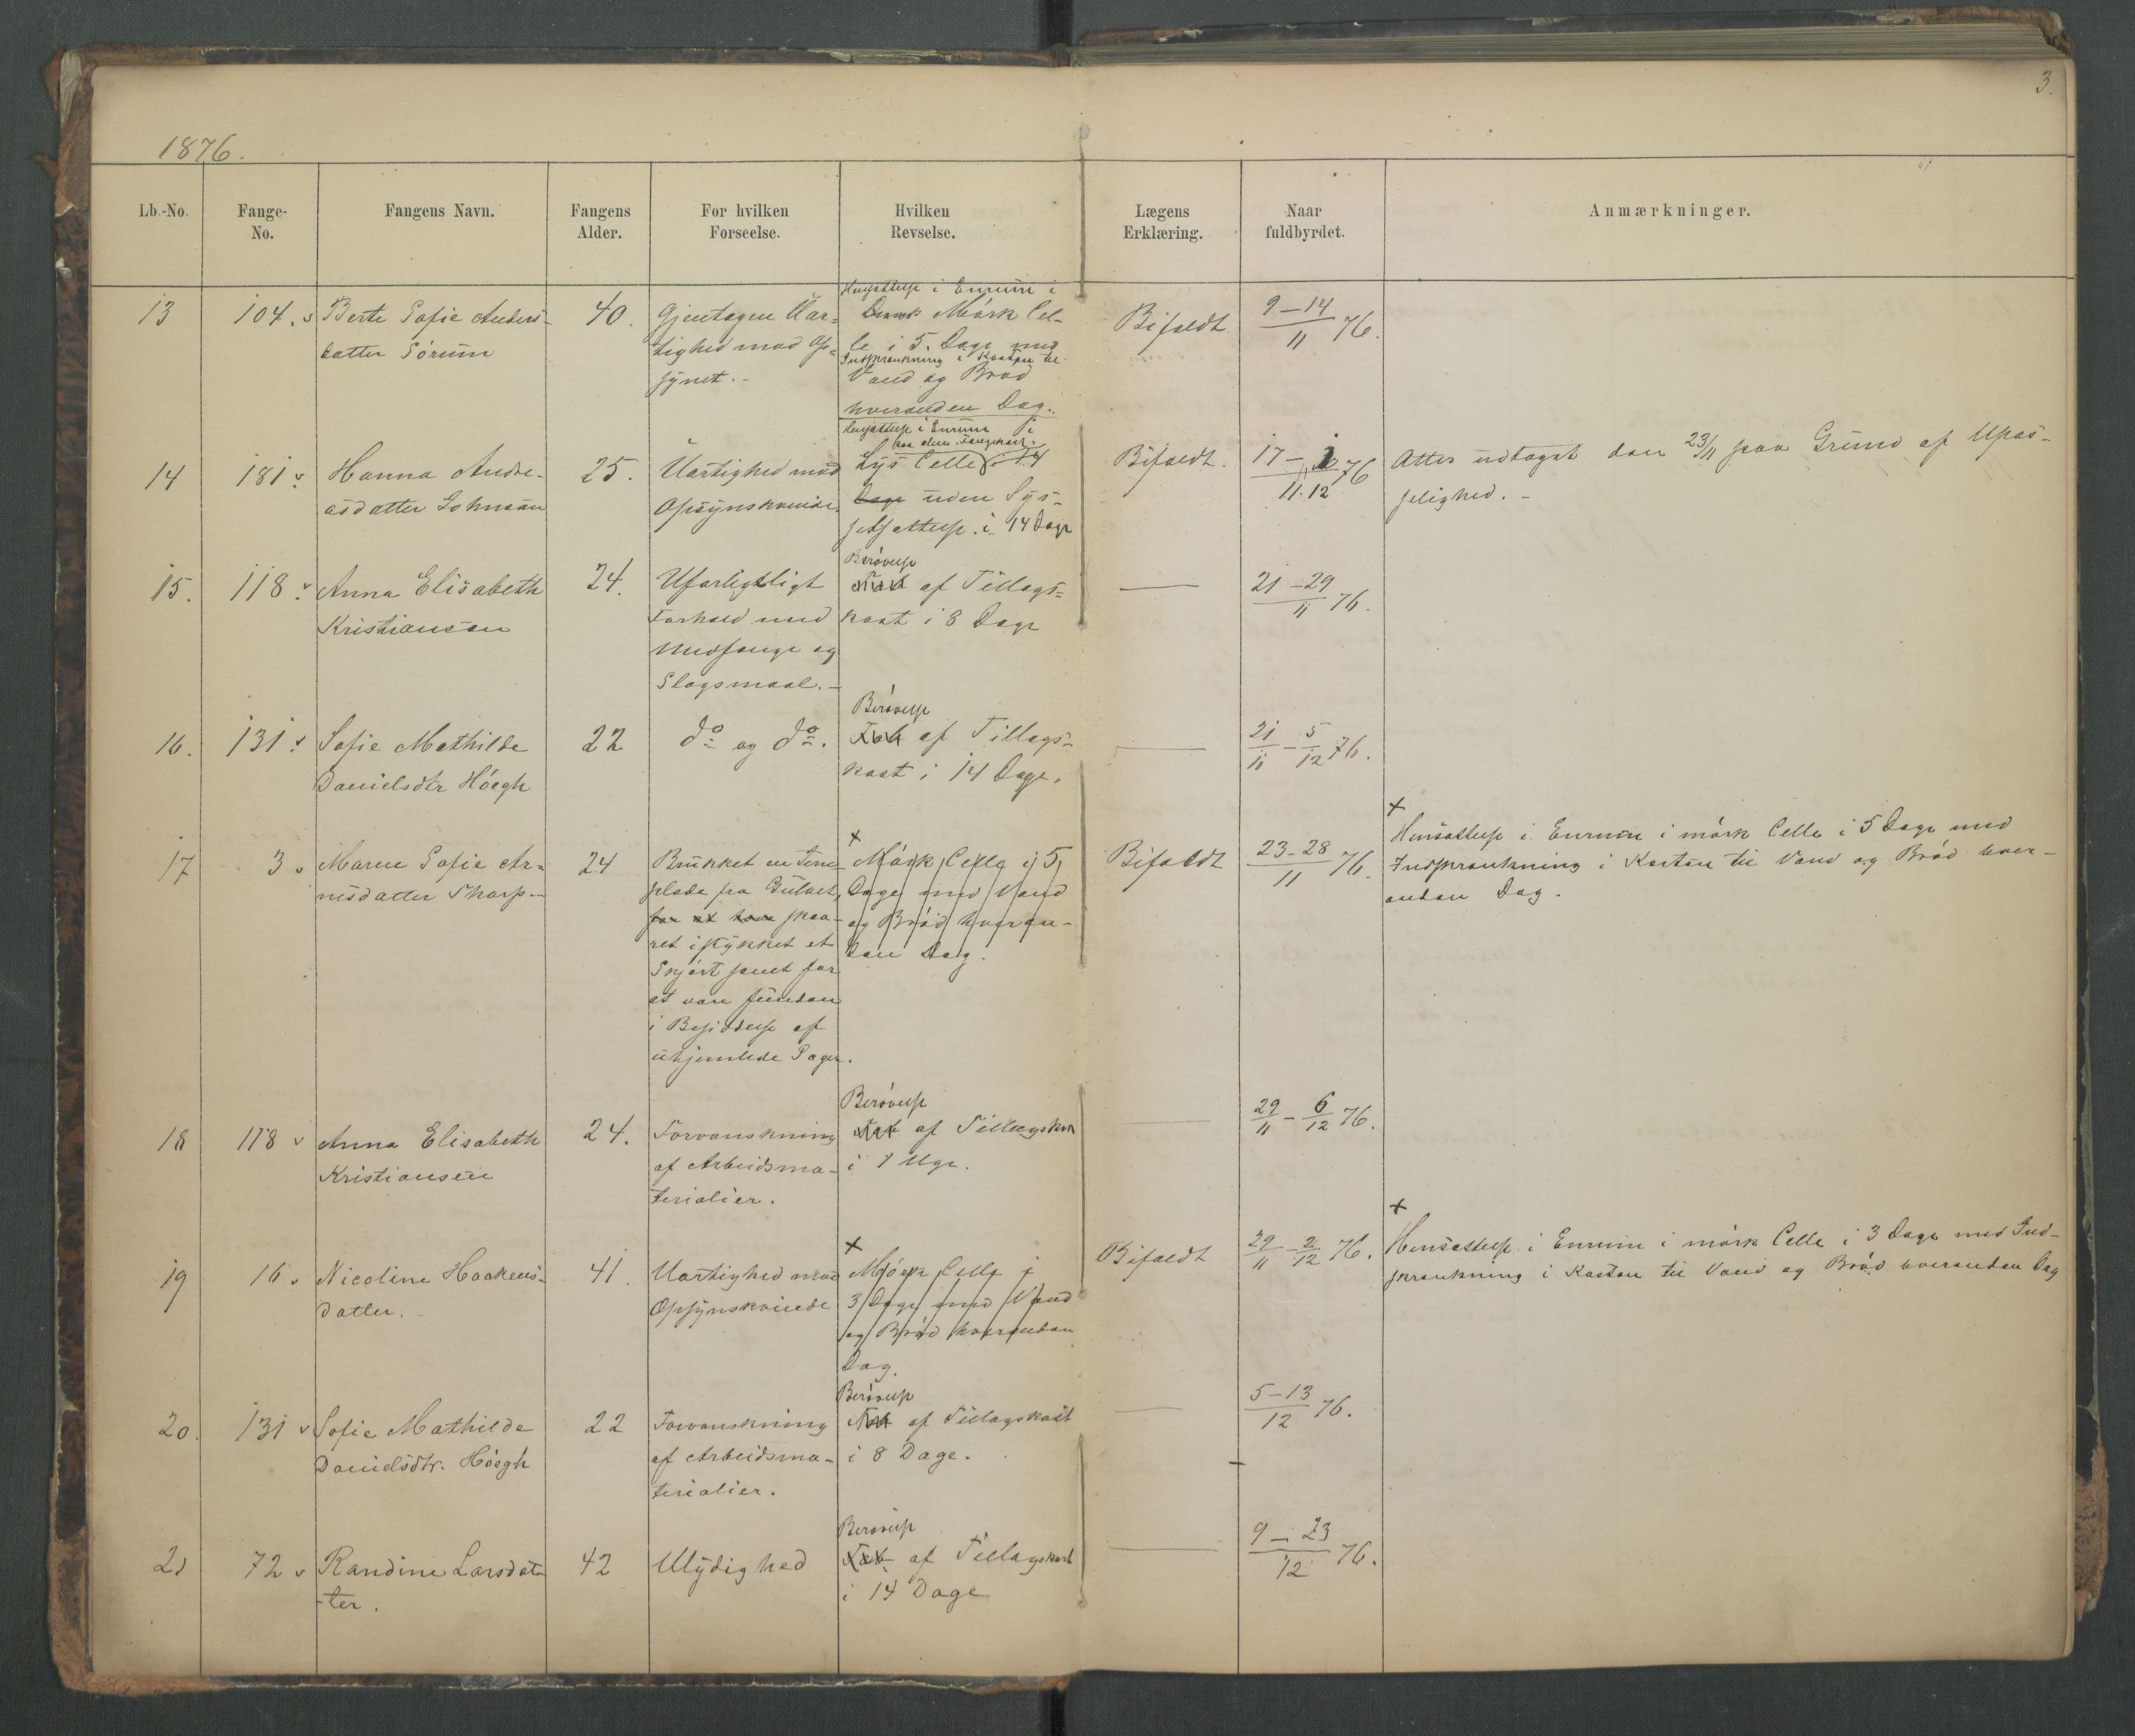 3.
1876.
Lb.-No.
Fange-
No.
Fangens Navn.
Fangens
Alder.
For hvilken
Forseelse.
Hvilken
Revselse.
Lægens
Erklæring.
Naar
fuldbyrdet.
Anmærkninger.
13
104.
Berte Sofie Anders-
datter Sørum
40.
Gjentagen Uar-
tighed mod Op-
synet.-
Hensættelse i Enrum i
Mørk Cel-
le i 5 Dage med
Indskrænkning i Kosten til
Vand og Brød
hveranden Dag.
Bifaldt
9-14
11 76.
14
181
Hanna Andre-
asdatter Johnsen
25.
Uartighed mod
Opsynskvinde.
Hensættelse i Enrum i
Lys Celle 14
Dage uden Sys-
selsættelse i 14 Dage
Bifaldt.
17 - 1
11.12 76
Atter udtaget den 23/11 paa Grund af Upas-
selighed.-
15.
118
Anna Elisabeth
Kristiansen
24.
Ufarligtligt
Forhold med
Medfange og
Slagsmaal.-
Berøvelse
Tab af Tillægs-
kost i 8 Dage
21-29
11 76.
16.
131
Sofie Mathilde
Danielsdtr Høegh
22
do og do.
Berøvelse
Tab af Tillægs-
kost i 14 Dage.
21/11 - 5/12 76.
17
3
Maren Sofie Ar-
nesdatter Skarp.-
24
Brukket en Jern-
plade fra Gulvet,
for at have skaa-
ret istykket et
Skjørt samt for
at være funden
i Besiddelse af
uhjemlede Sager.
+
Mørk Celle i 5
Dage med Vand
og Brød hveran-
den Dag.
Bifaldt
23-28
11 76.
+
Hensættelse i Enrum i mørk Celle i 5 Dage med
Indskrænkning i Kosten til Vand og Brød hver-
anden Dag.
18
118
Anna Elisabeth
Kristiansen
24.
Forvanskning
af Arbeidsma-
terialier.
Berøvelse
Tab af Tillægskost
i 1 Uge.
29/11 - 6/12 76.
19
16
Nicoline Haakens-
datter.
41.
Uartighed mod
Opsynskvinde
+
Mørk Celle i
3 Dage med Vand
og Brød hveranden
Dag.
Bifaldt
29/11 - 2/12 76.
+
Hensættelse i Enrum i mørk Celle i 3 Dage med Ind-
skrænkning i Kosten til Vand og Brød hveranden Dag
20.
131
Sofie Mathilde
Danielsdtr. Høegh
22
Forvanskning
af Arbeidsma-
terialier.
Berøvelse
Tab af Tillægskost
i 8 Dage.
5-13
12 76.
21
72
Randine Larsdat-
-ter.
42
Ulydighed
Berøvelse
Tab af Tillægskost
i 14 Dage
9 - 23
12 76.